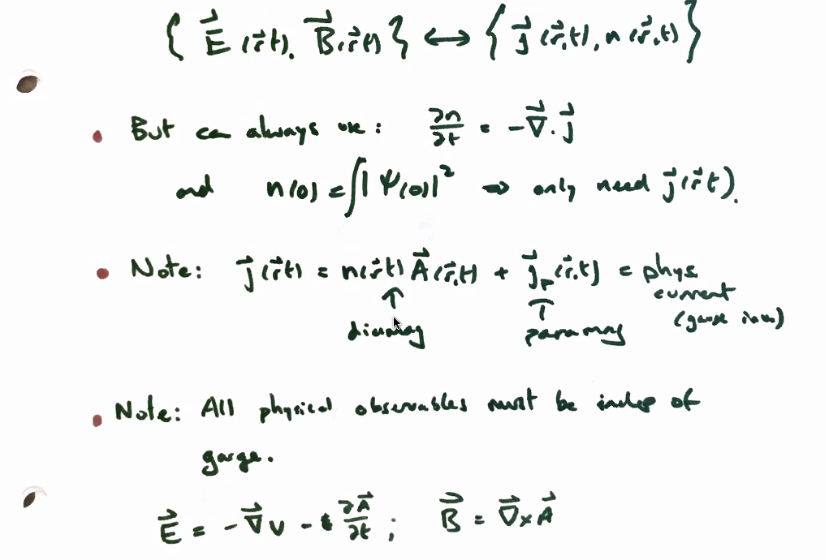 { E⃗ (r⃗t), B⃗(r⃗t) } ↔ { j⃗ (r⃗,t), n (r⃗,t) }
• But can always use: ∂n/∂t = -∇⃗·j⃗
and n(0) = ∫|Ψ(0)|² ⇒ only need j⃗(r⃗t).
• Note: j⃗(r⃗t) = n(r⃗t) A⃗(r⃗,t) + j⃗p(r⃗,t) = phys
current
↑ ↑ (gauge inv)
diamag paramag
• Note: All physical observables must be indep of
gauge.
E⃗ = -∇⃗v - ∂A⃗/∂t ; B⃗ = ∇⃗×A⃗